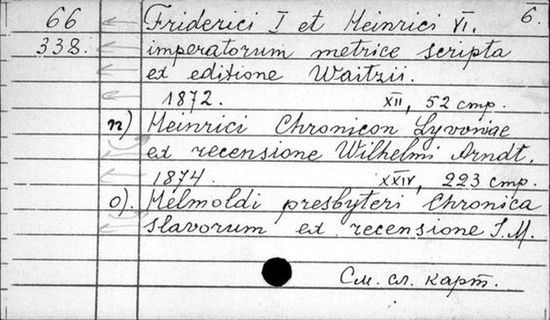 66 Friderici I et Heinrici VI. 6.
338. imperatorum metrice scripta
ex editione Waitzii.
1872. XII, 52 стр.
n) Heinrici Chronicon Lyvoniae
ex recensione Wilhelmi Arndt.
1874. XXIV, 223 стр.
o). Helmoldi presbyteri Chronica
slavorum ex recensione I. M.
См. сл. карт.